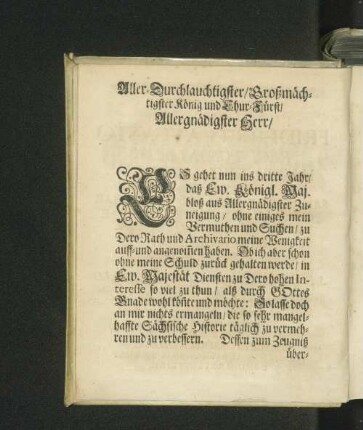 Aller-Durchlauchtigster/Großmäch-
tigster König und Chur-Fürst/
Allergnädigster Herr/
ES gehet nun ins dritte Jahr/
daß Ew. Königl. Maj.
bloß aus Allergnädigster Zu-
neigung/ ohne einiges mein
Vermuthen und Suchen/ zu
Dero Rath und Archivario meine Wenigkeit
auff- und angenom̃en haben. Ob ich aber schon
ohne meine Schuld zurück gehalten werde/ in
Ew. Majestät Diensten zu Dero hohen In-
teresse so viel zu thun/ alß durch GOttes
Gnade wohl kön̄te und möchte: So lasse doch
an mir nichts ermangeln/ die so sehr mangel-
haffte Sächsische Historie täglich zu vermeh-
ren und zu verbessern. Dessen zum Zeugniß
über-